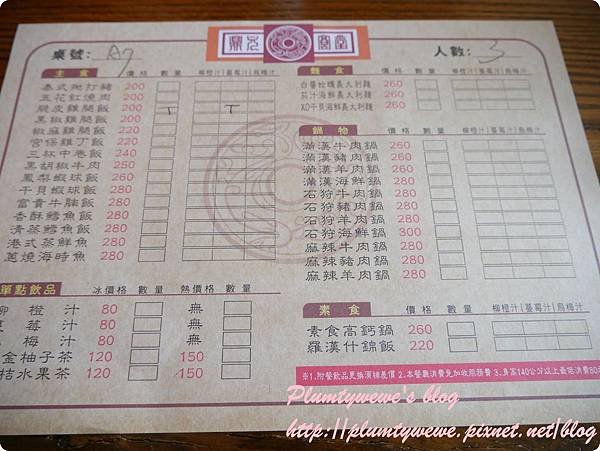 桌號: A7
人數: 3
主食 價格 數量 柳橙汁|蔓莓汁|烏梅汁
泰式椒打豬 200
五花紅燒肉 200
脆皮雞腿飯 200
黑椒雞腿飯 200
椒麻雞腿飯 220
宮保雞丁飯 220
三杯中卷飯 240
黑胡椒牛肉 250
鳳梨蝦球飯 260
干貝蝦球飯 280
富貴牛腩飯 280
香酥鱈魚飯 280
清蒸鱈魚飯 280
港式蒸鮮魚 280
蔥燒海時魚 280
單點飲品 冰價格 數量 熱價格 數量
柳橙汁 80 無
蔓莓汁 80 無
烏梅汁 80 無
金柚子茶 120 150
桔水果茶 120 150
麵食 價格 數量 柳橙汁|蔓莓汁|烏梅汁
白醬蛤蠣義大利麵 260
茄汁海鮮義大利麵 260
XO干貝海鮮義大利麵 260
鍋物 價格 數量 柳橙汁|蔓莓汁|烏梅汁
滿漢牛肉鍋 260
滿漢豬肉鍋 260
滿漢羊肉鍋 260
滿漢海鮮鍋 280
石狩牛肉鍋 280
石狩豬肉鍋 280
石狩羊肉鍋 280
石狩海鮮鍋 300
麻辣牛肉鍋 280
麻辣豬肉鍋 280
麻辣羊肉鍋 280
素食 價格 數量 柳橙汁|蔓莓汁|烏梅汁
素食高鈣鍋 260
羅漢什錦飯 220
※1.附餐飲品更換須補差價 2.本餐廳消費免加收服務費 3.身高140公分以上最低消費80元
Plumtywewe's blog
http://plumtywewe.pixnet.net/blog